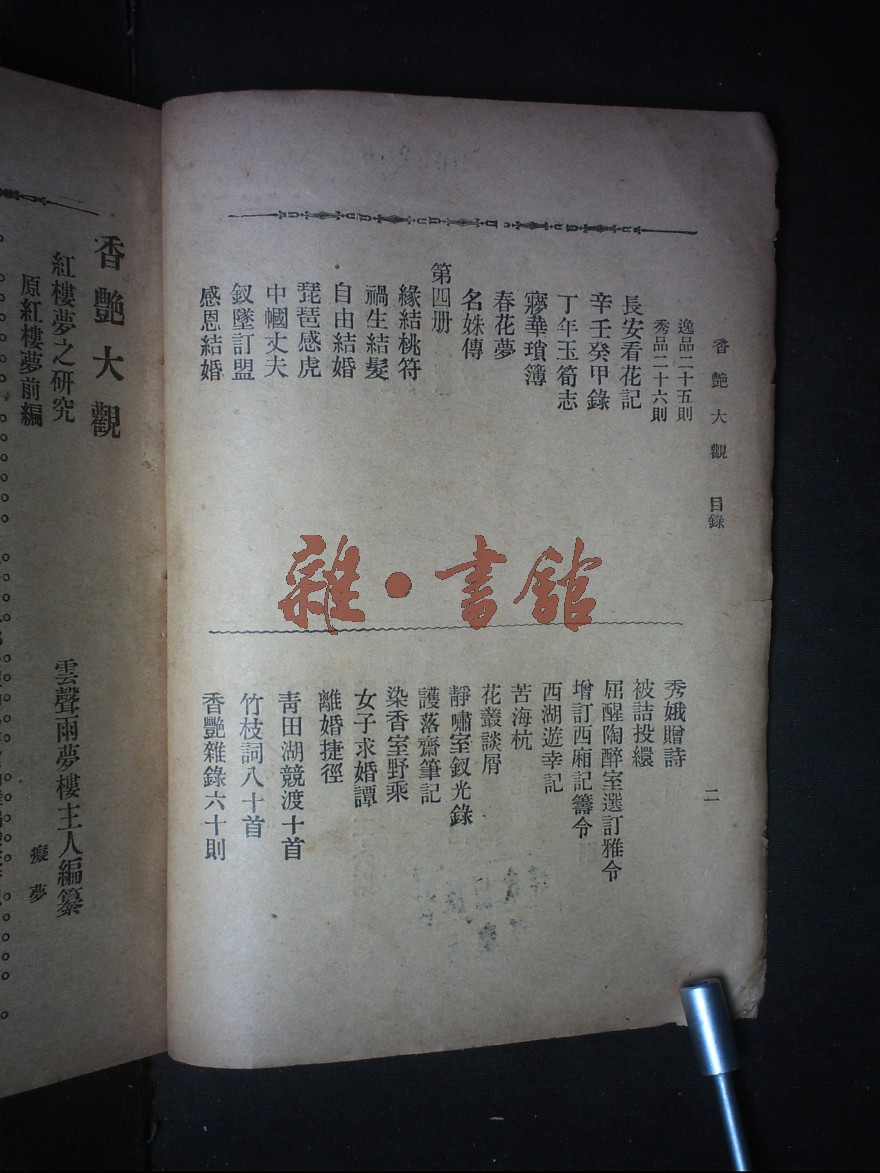 香艷大觀 目錄
二
逸品二十五則
秀品二十六則
長安看花記
辛壬癸甲錄
丁年玉筍志
㝱華瑣簿
春花夢
名姝傳
第四册
緣結桃符
禍生結髮
自由結婚
琵琶感虎
巾幗丈夫
釵墜訂盟
感恩結婚
秀娥贈詩
被詰投繯
屈醒陶醉室選訂雅令
增訂西廂記籌令
西湖遊幸記
苦海杭
花叢談屑
靜嘯室釵光錄
護落齋筆記
染香室野乘
女子求婚譚
離婚捷徑
靑田湖競渡十首
竹枝詞八十首
香艷雜錄六十則
雜·書館
香艷大觀
雲聲雨夢樓主人編纂
紅樓夢之研究
癡夢
原紅樓夢前編